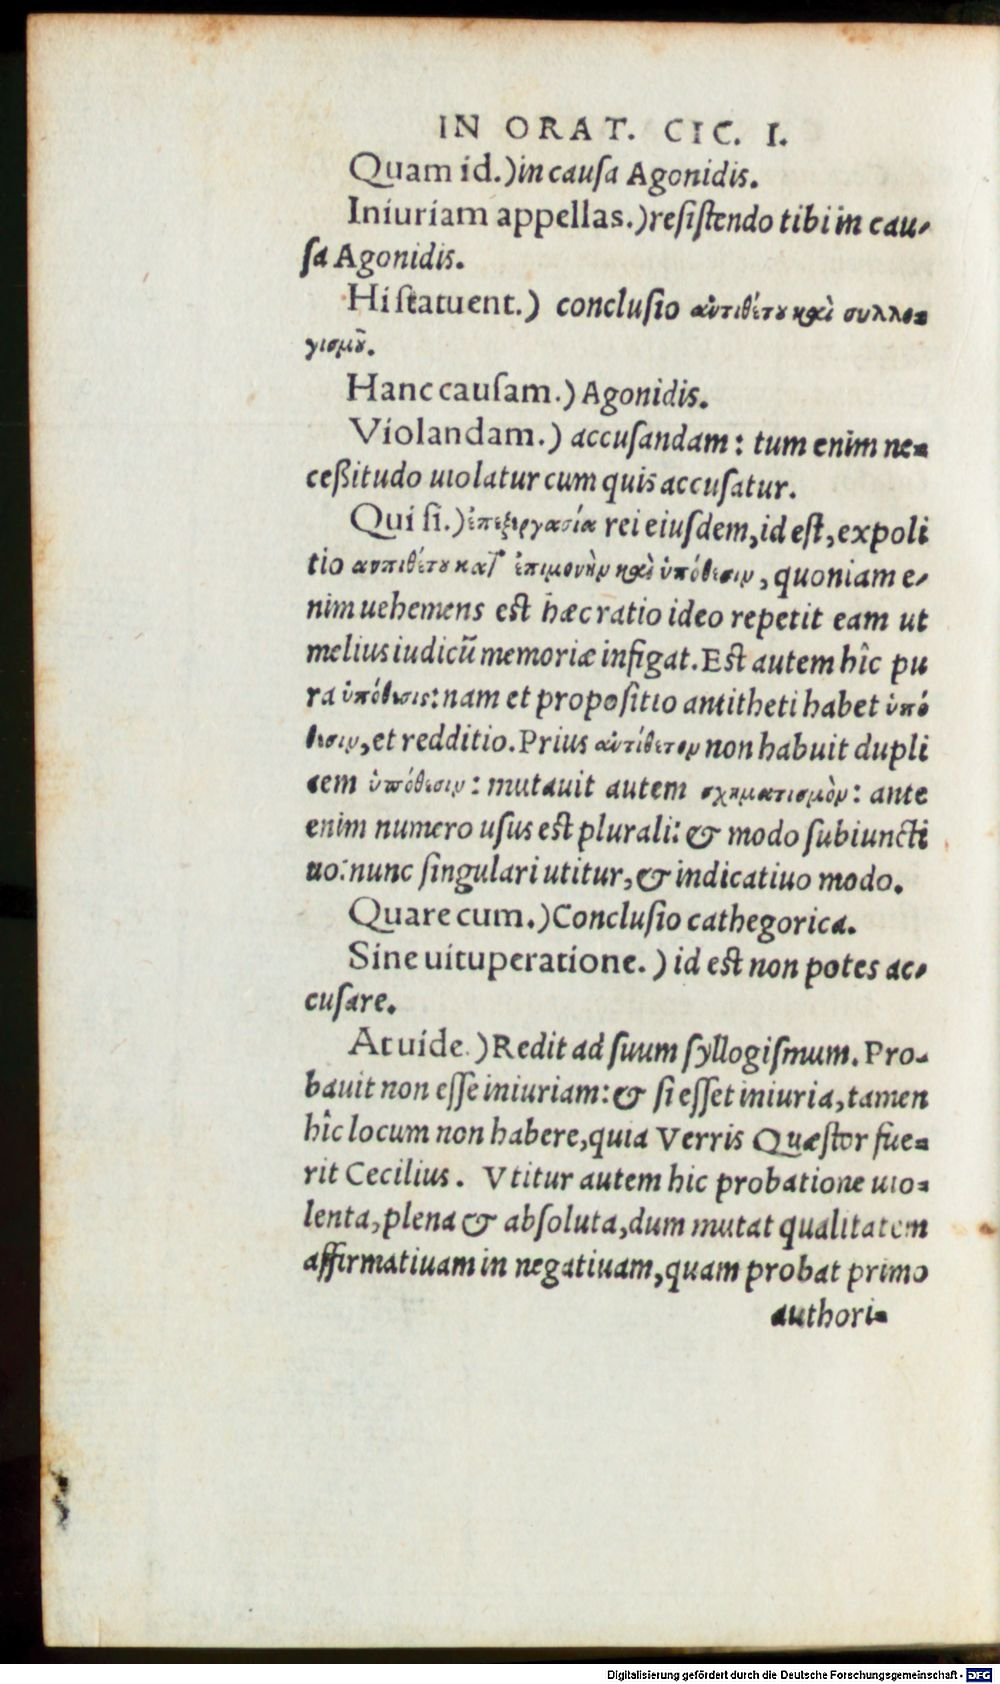 IN ORAT. CIC. I.
Quam id.) in cauſa Agonidis.
Iniuriam appellas.) reſiſtendo tibi in cau-
ſa Agonidis.
Hi ſtatuent.) concluſio ἀντιθέτου καὶ συλλο-
γισμοῦ.
Hanc cauſam.) Agonidis.
Violandam.) accuſandam: tum enim ne-
ceßitudo uiolatur cum quis accuſatur.
Qui ſi.) ἐπεξεργασία rei eiuſdem, id eſt, expoli
tio αντιθέτου κατ' ἐπιμονὴν καὶ ὑπόθεσιν, quoniam e-
nim uehemens eſt hæc ratio ideo repetit eam ut
melius iudicũ memoriæ infigat. Eſt autem hîc pu
ra ὑπόθεσις: nam et propoſitio antitheti habet ὑπό
θεσιν, et redditio. Prius ἀντίθετον non habuit dupli
cem ὑπόθεσιν: mutauit autem σχηματισμὸν: ante
enim numero uſus eſt plurali: & modo ſubiuncti
uo: nunc ſingulari utitur, & indicatiuo modo.
Quare cum.) Concluſio cathegorica.
Sine uituperatione.) id eſt non potes ac-
cuſare.
At uide.) Redit ad ſuum ſyllogiſmum. Pro-
bauit non eſſe iniuriam: & ſi eſſet iniuria, tamen
hîc locum non habere, quia Verris Quæſtor fue-
rit Cecilius. Vtitur autem hic probatione uio-
lenta, plena & abſoluta, dum mutat qualitatem
affirmatiuam in negatiuam, quam probat primo
authori-
Digitalisierung gefördert durch die Deutsche Forschungsgemeinschaft - DFG